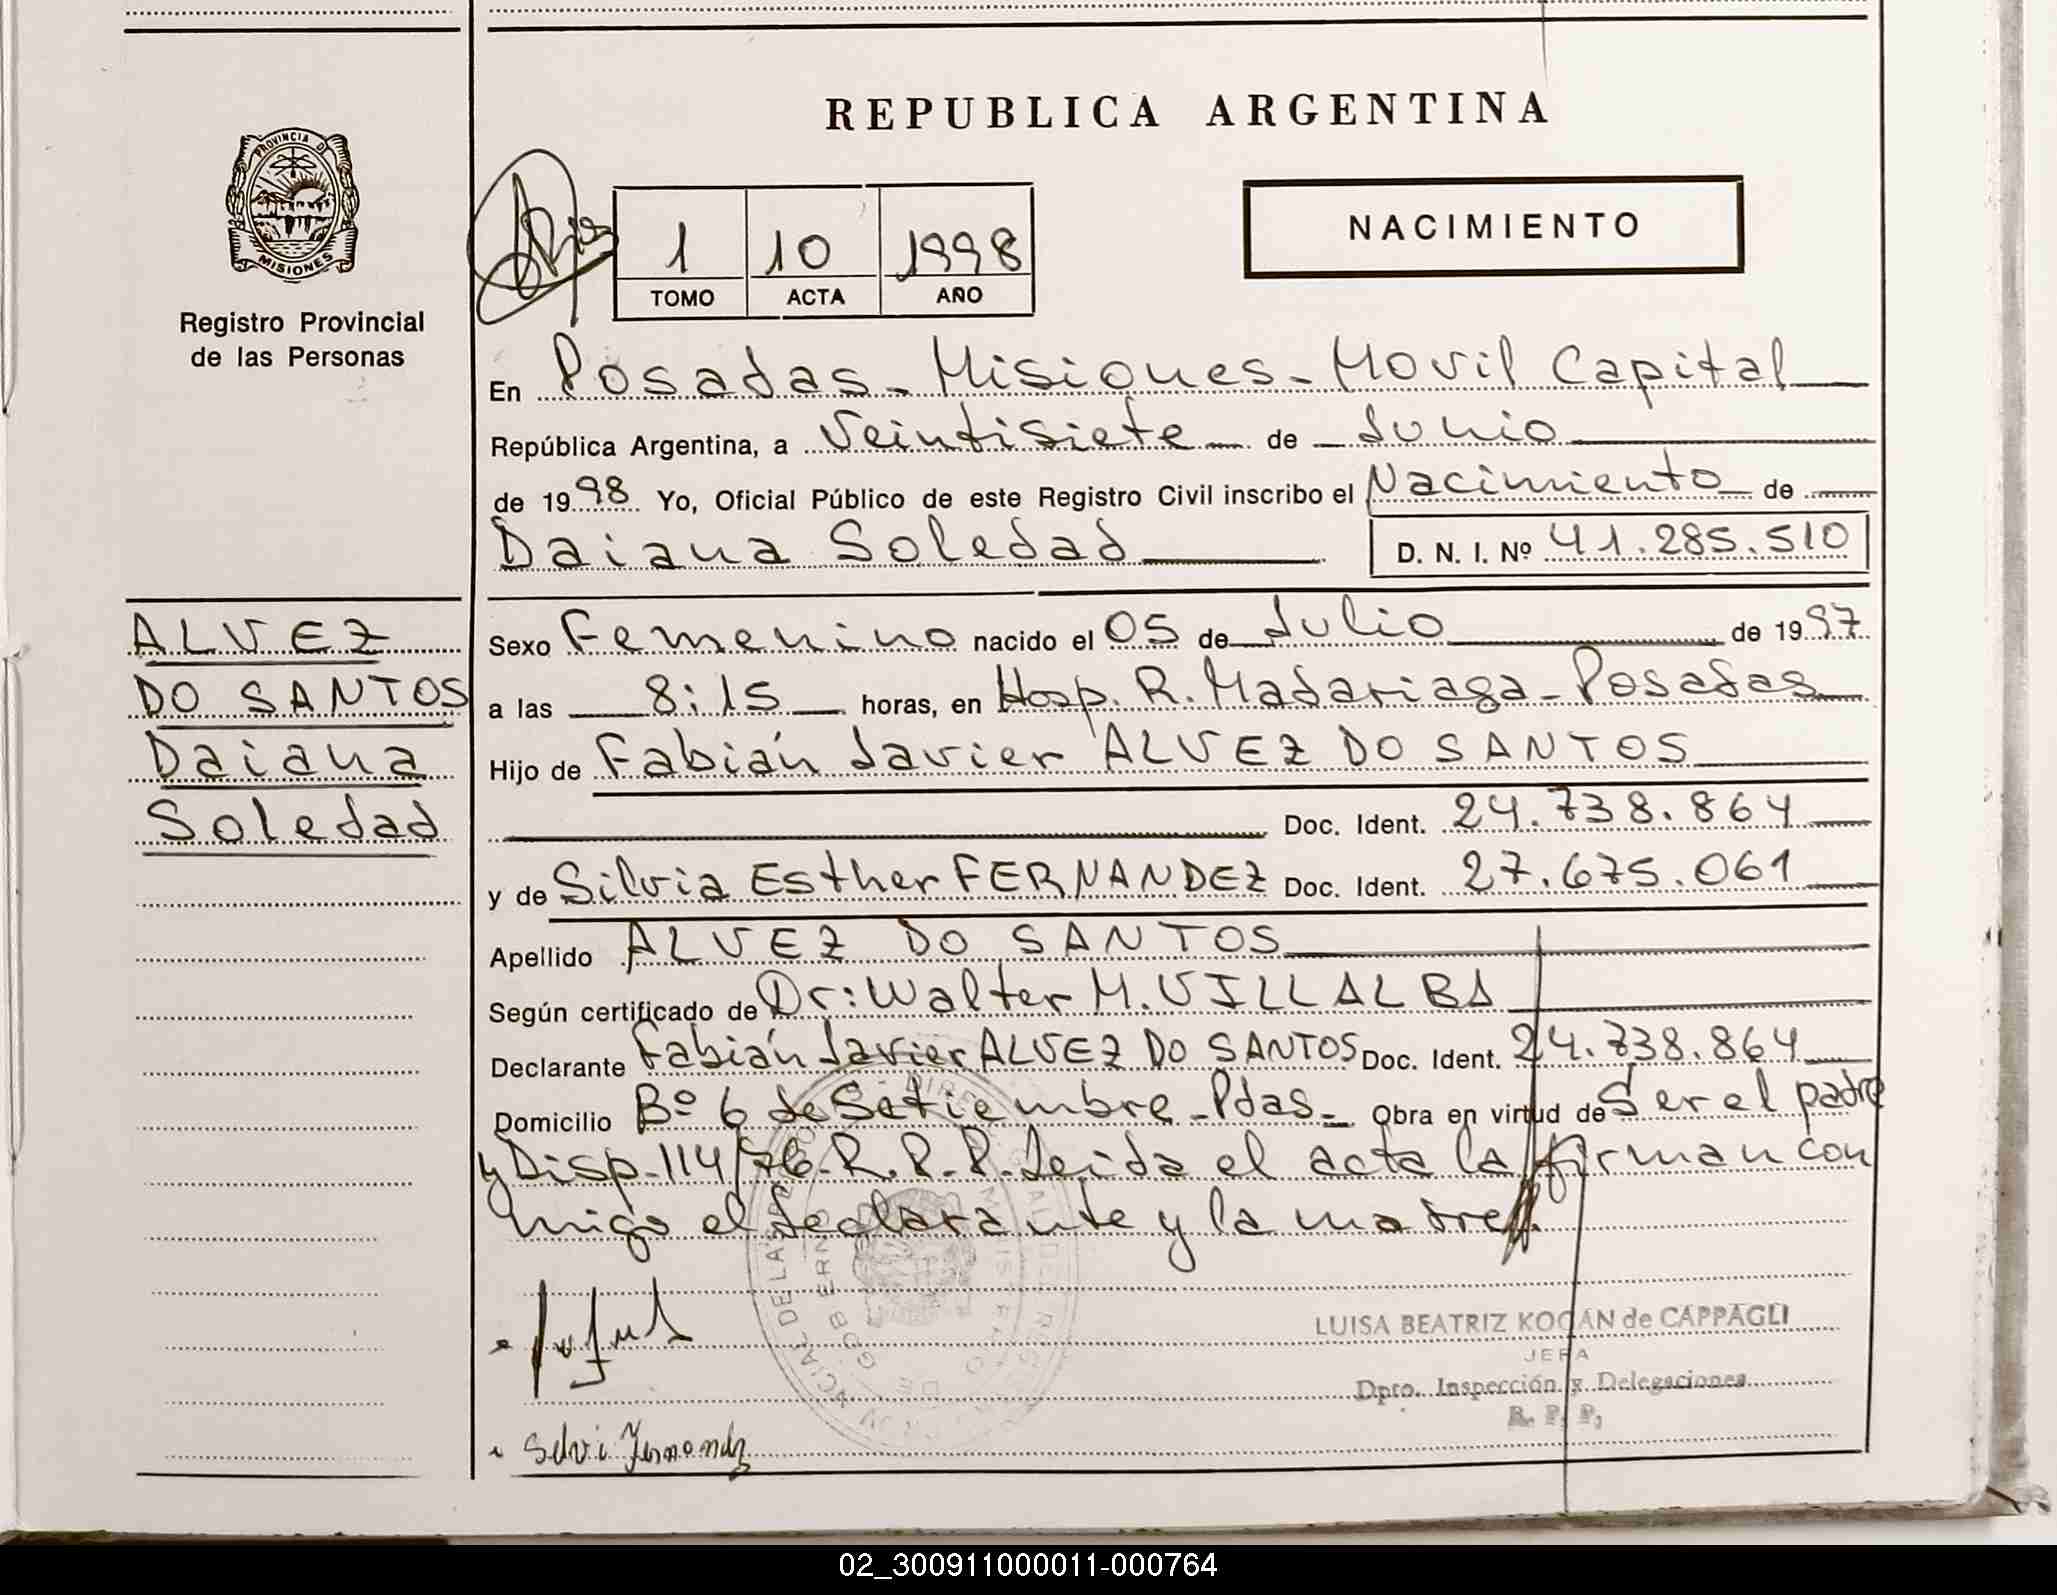 REPUBLICA ARGENTINA
PROVINCIA DE
MISIONES
Registro Provincial
de las Personas
1 10 1998
TOMO ACTA AÑO
NACIMIENTO
En Posadas - Misiones - Movil Capital
República Argentina, a Veintisiete de Junio
de 1998 Yo, Oficial Público de este Registro Civil inscribo el Nacimiento de
Daiana Soledad D. N. I. Nº 41.285.510
ALVEZ
DO SANTOS
Daiana
Soledad
Sexo Femenino nacido el 05 de Julio de 1997
a las 8:15 horas, en Hosp. R. Madariaga - Posadas
Hijo de Fabián Javier ALVEZ DO SANTOS
Doc. Ident. 24.738.864
y de Silvia Esther FERNANDEZ Doc. Ident. 27.675.061
Apellido ALVEZ DO SANTOS
Según certificado de Dr: Walter M. VILLALBA
Declarante Fabián Javier ALVEZ DO SANTOS Doc. Ident. 24.738.864
Domicilio Bº 6 de Setiembre - Pdas - Obra en virtud de Ser el padre
y Disp. 114/76. R. P. P. Leida el acta la firman con
migo el declarante y la madre.
LUISA BEATRIZ KOGAN de CAPPAGLI
JEFA
Dpto. Inspección y Delegaciones
R. P. P.
Silvi Fernandez
02_300911000011-000764